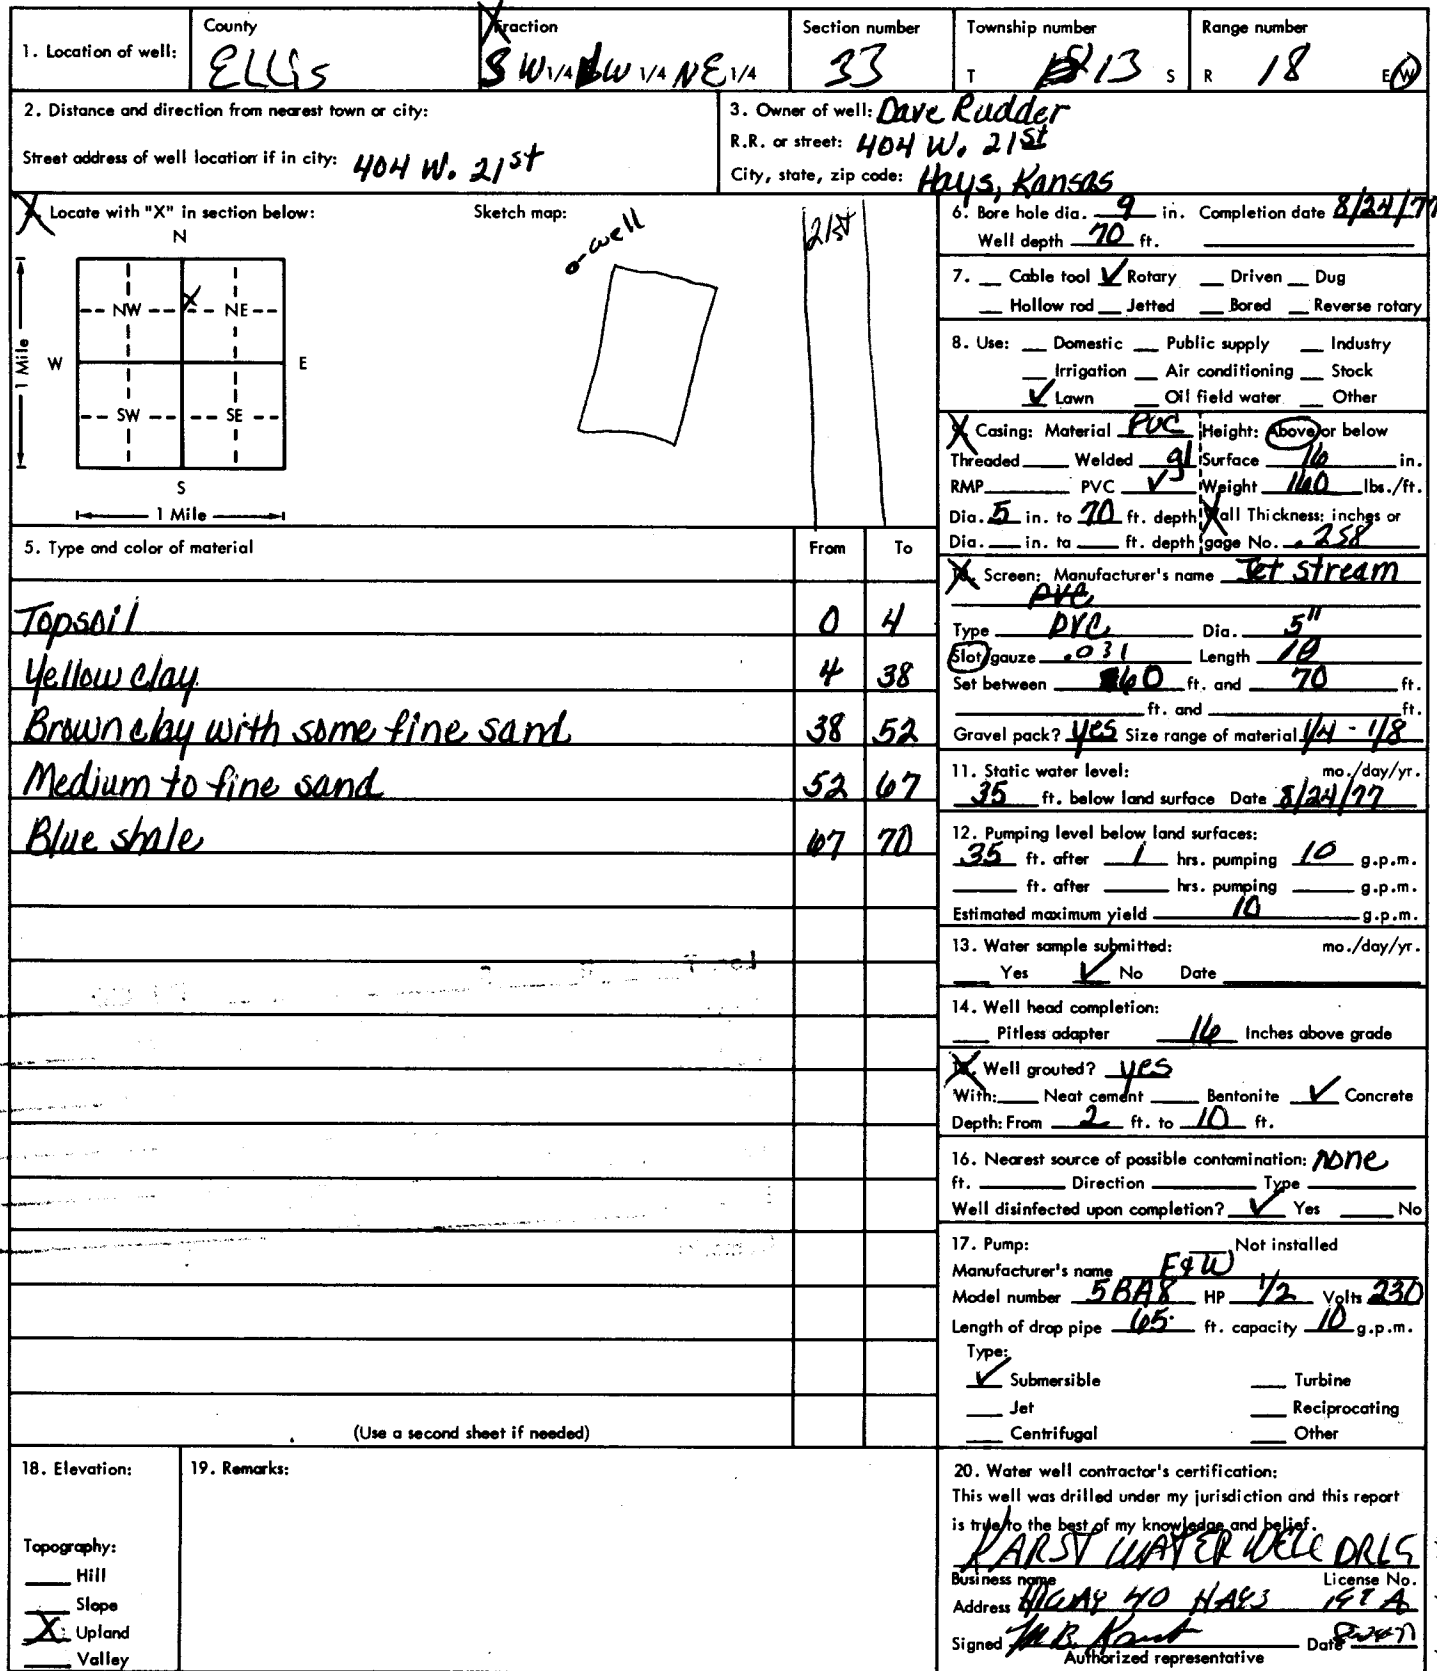 1. Location of well: County ELLIS Fraction SW 1/4 NW 1/4 NE 1/4 Section number 33 Township number T 13 S Range number R 18 E/W
2. Distance and direction from nearest town or city:
Street address of well location if in city: 404 W. 21st
3. Owner of well: Dave Rudder
R.R. or street: 404 W. 21st
City, state, zip code: Hays, Kansas
4. Locate with "X" in section below:
N
NW X NE
W E
SW SE
S
1 Mile
1 Mile
Sketch map:
o-well
21st
5. Type and color of material From To
Topsoil 0 4
Yellow clay 4 38
Brown clay with some fine sand 38 52
Medium to fine sand 52 67
Blue shale 67 70
(Use a second sheet if needed)
6. Bore hole dia. 9 in. Completion date 8/24/77
Well depth 70 ft.
7. Cable tool ✓ Rotary Driven Dug
Hollow rod Jetted Bored Reverse rotary
8. Use: Domestic Public supply Industry
Irrigation Air conditioning Stock
✓ Lawn Oil field water Other
9. Casing: Material PVC Height: Above or below
Threaded Welded gl Surface 16 in.
RMP PVC ✓ Weight 160 lbs./ft.
Dia. 5 in. to 70 ft. depth Wall Thickness: inches or
Dia. in. to ft. depth gage No. .258
10. Screen: Manufacturer's name Jet stream
PVC
Type PVC Dia. 5"
Slot/gauze .031 Length 10
Set between 60 ft. and 70 ft.
ft. and ft.
Gravel pack? yes Size range of material 1/4 - 1/8
11. Static water level: mo./day/yr.
35 ft. below land surface Date 8/24/77
12. Pumping level below land surfaces:
35 ft. after 1 hrs. pumping 10 g.p.m.
ft. after hrs. pumping g.p.m.
Estimated maximum yield 10 g.p.m.
13. Water sample submitted: mo./day/yr.
Yes ✓ No Date
14. Well head completion:
Pitless adapter 16 Inches above grade
15. Well grouted? yes
With: Neat cement Bentonite ✓ Concrete
Depth: From 2 ft. to 10 ft.
16. Nearest source of possible contamination: none
ft. Direction Type
Well disinfected upon completion? ✓ Yes No
17. Pump: Not installed
Manufacturer's name F&W
Model number 5BA8 HP 1/2 Volts 230
Length of drop pipe 65 ft. capacity 10 g.p.m.
Type:
✓ Submersible Turbine
Jet Reciprocating
Centrifugal Other
18. Elevation:
Topography:
Hill
Slope
X Upland
Valley
19. Remarks:
20. Water well contractor's certification:
This well was drilled under my jurisdiction and this report
is true to the best of my knowledge and belief.
KARST WATER WELL DRLG
Business name License No.
Address HIWAY 40 HAYS 197 A
Signed M.B. Karst Date
Authorized representative